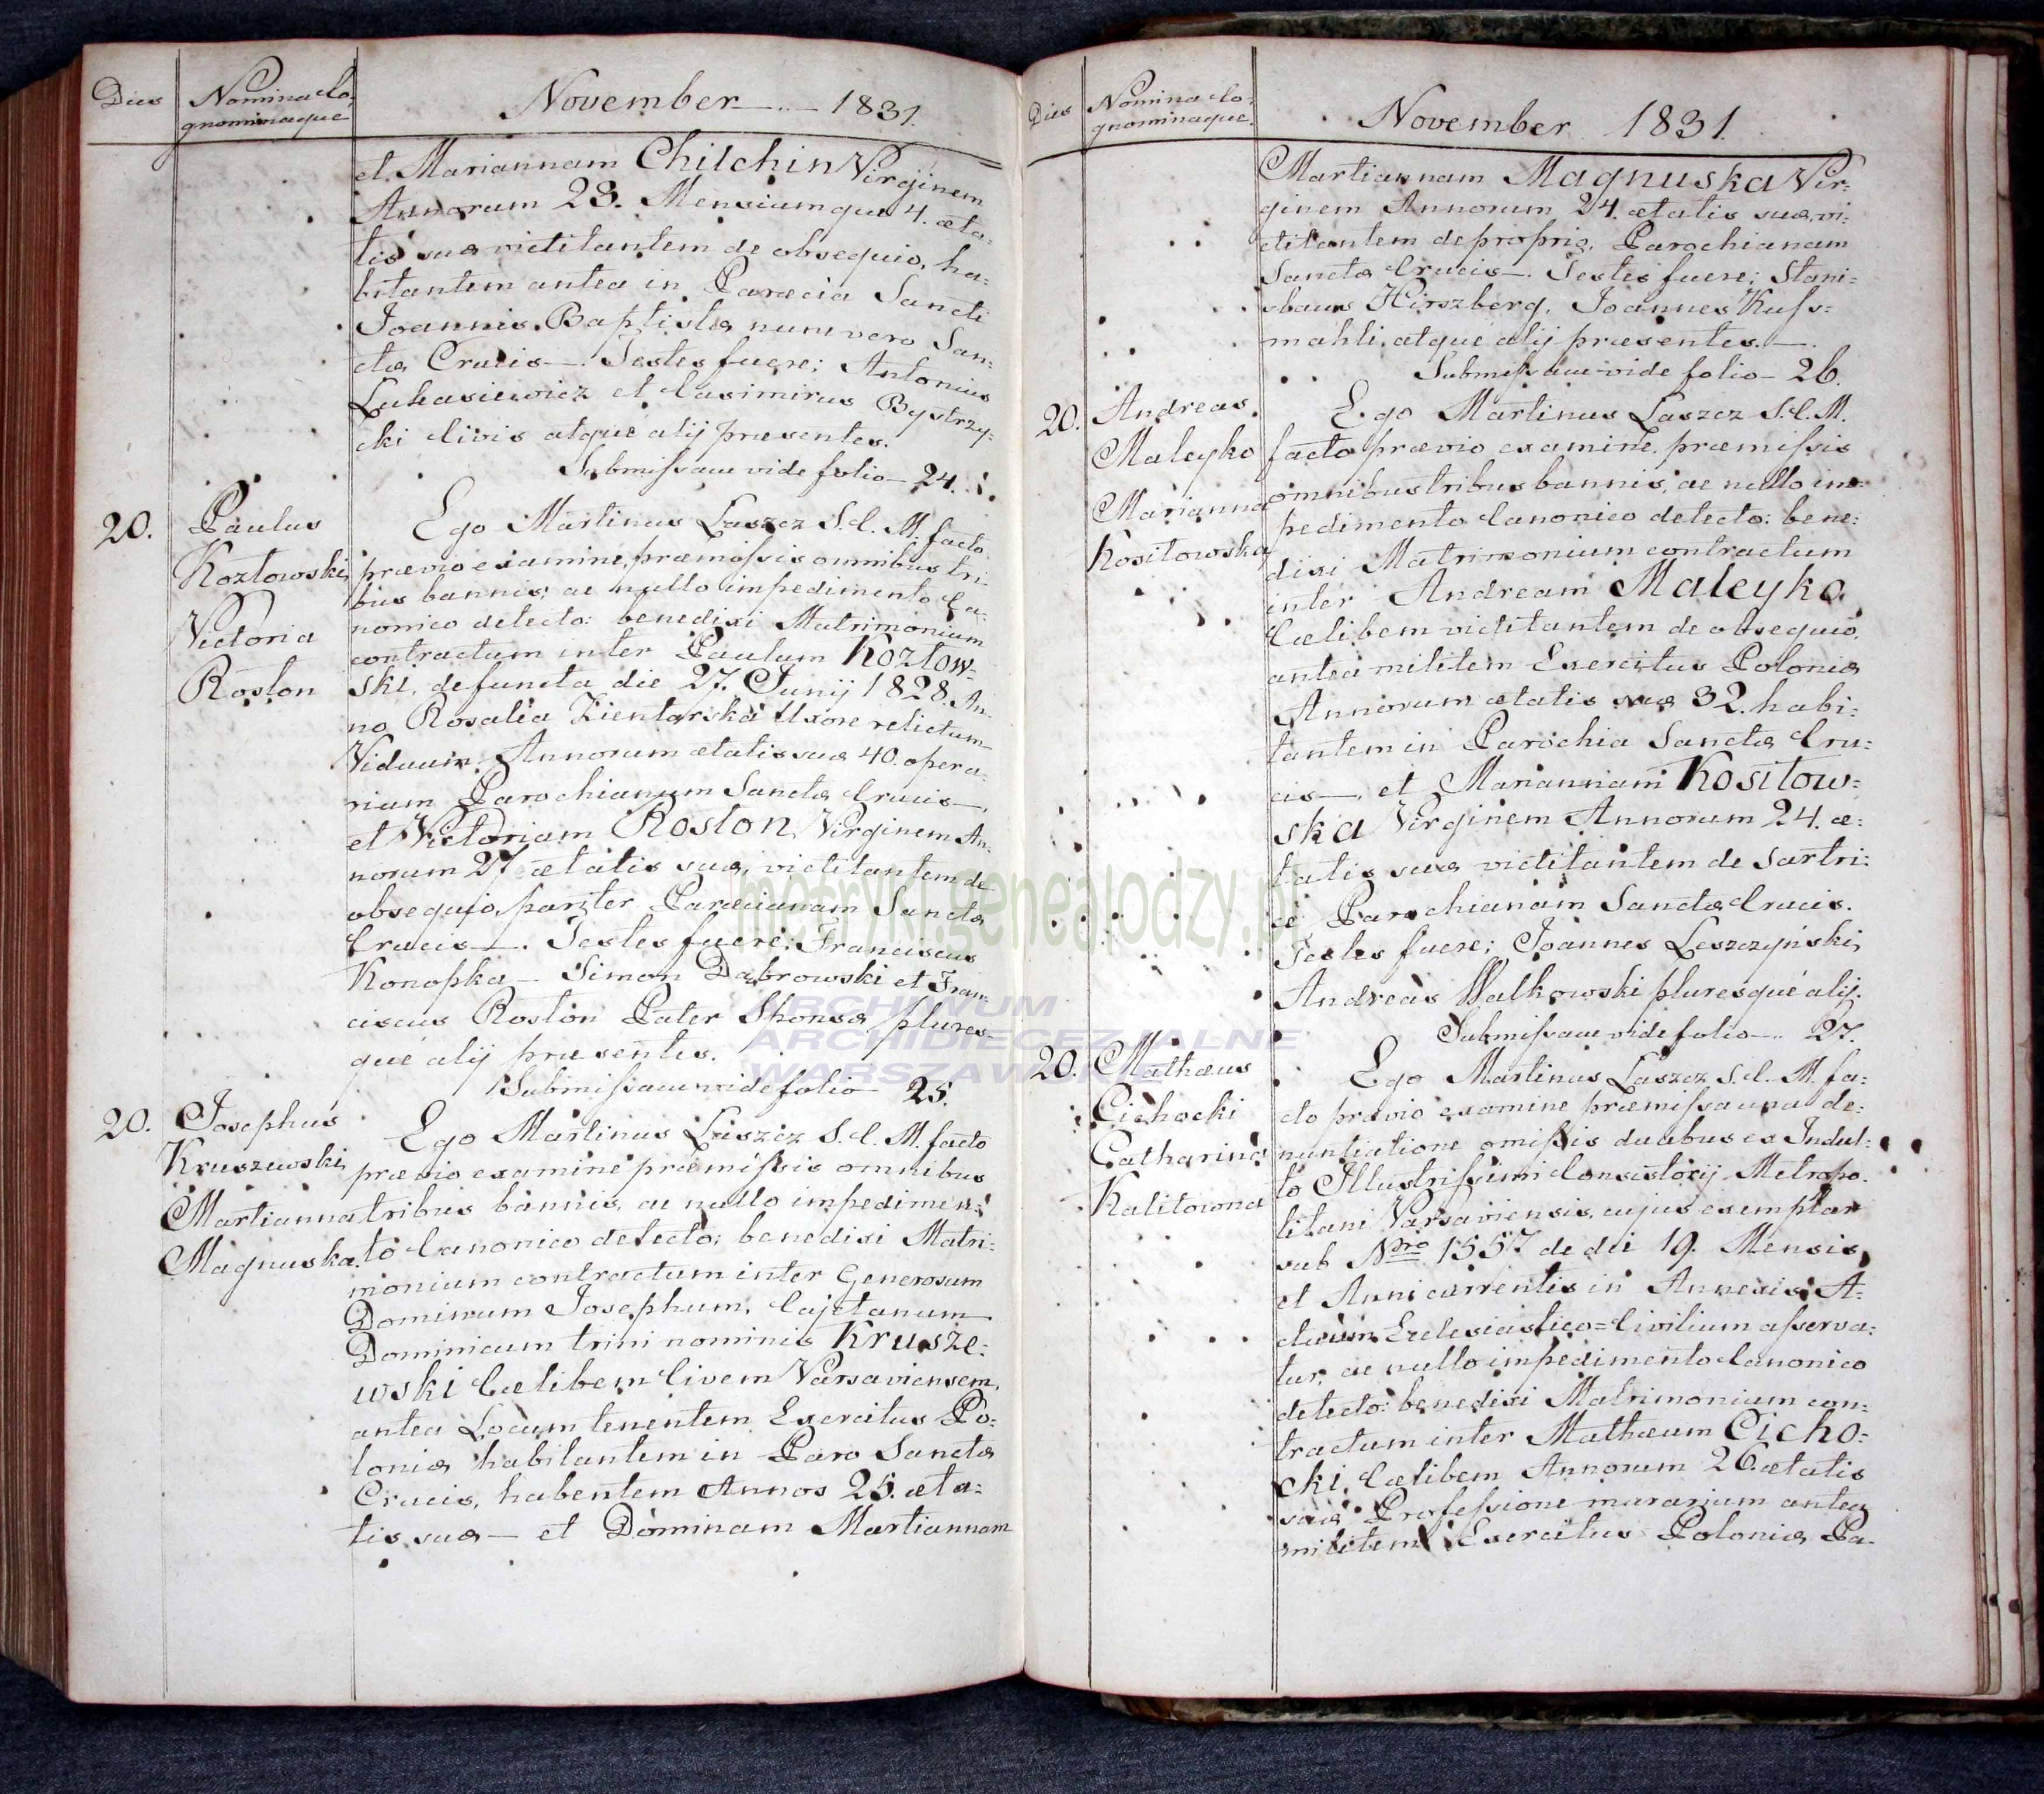 Dies
Nomina Co:
gnominaque
November 1831.
et Mariannam Chilchin Virginem
Annorum 23. Mensiumque 4. æta:
tis suæ victitantem de obsequio, ha:
bitantem antea in Paræcia Sancti
Joannis Baptistæ nunc vero San:
ctæ Crucis —. Testes fuere; Antonius
Łukasiewicz et Casimirus Bystrzy:
cki Civis atque alij præsentes.
Submissam vide folio — 24.
20.
Paulus
Kozłowski
Victoria
Rosłon
Ego Martinus Łaszcz S. C. M. facto
prævio examine, præmissis omnibus tri:
bus bannis; ac nullo impedimento Ca:
nonico detecto: benedixi Matrimonium
contractum inter Paulum Kozłow:
ski, defuncta die 27. Junij 1828. An:
no Rosalia Zientarska Uxore relictum
Viduum, Annorum ætatis suæ 40. opera:
rium Parochianum Sanctæ Crucis —,
et Victoriam Rosłon, Virginem An:
norum 27 ætatis suæ, victitantem de
obsequio, pariter Paræcianam Sanctæ
Crucis —. Testes fuere; Franciscus
Konopka — Simon Dąbrowski et Fran:
ciscus Rosłon Pater Sponsæ plures:
que alij præsentes.
Submissam vide folio 25.
20.
Josephus
Kruszewski
Martianna
Magnuska.
Ego Martinus Łaszcz S. C. M. facto
prævio examine præmissis omnibus
tribus bannis, ac nullo impedimen:
to Canonico detecto; benedixi Matri:
monium contractum inter Generosum
Dominum Josephum, Cajetanum
Dominicum trini nominis Krusze:
wski Cælibem Civem Varsaviensem,
antea Locum tenentem Exercitus Po:
loniæ habitantem in Paro Sanctæ
Crucis, habentem Annos 25. æta:
tis suæ — et Dominam Martiannam
Dies
Nomina Co:
gnominaque.
November 1831.
Martiannam Magnuska Vir:
ginem Annorum 24. ætatis suæ, vi:
ctitantem de proprio, Parochianam
Sanctæ Crucis —. Testes fuere; Stani:
slaus Hirszberg, Joannes Kuss:
mahli, atque alij præsentes. —
Submissam vide folio — 26.
20.
Andreas
Maleyko
Marianna
Kositowska
Ego Martinus Łaszcz S. C. M.
facto prævio examine, præmissis
omnibus tribus bannis, ac nullo im:
pedimento Canonico detecto: bene:
dixi Matrimonium contractum
inter Andream Maleyko
Cælibem victitantem de obsequio,
antea militem Exercitus Poloniæ
Annorum ætatis suæ 32. habi:
tantem in Parochia Sanctæ Cru:
cis —, et Mariannam Kositow:
ska Virginem Annorum 24. æ:
tatis suæ victitantem de Sartri:
ce Parochianam Sanctæ Crucis.
Testes fuere; Joannes Leszczyński,
Andreas Walkowski pluresque alij.
Submissam vide folio — 27.
20.
Mathæus
Cichocki
Catharina
Kalitowna
Ego Martinus Łaszcz, S. C. M. fa:
cto prævio examine præmissa una de:
nuntiatione omissis duabus ex Indul:
to Illustrissimi Consistorij Metropo:
litani Varsaviensis, cujus exemplar
sub Nro 1557 de dei 19. Mensis,
et Anni currentis in Annexis A:
ctuum Ecclesiastico=Civilium asserva:
tur, ac nullo impedimento Canonico
detecto: benedixi Matrimonium con:
tractum inter Mathæum Cicho:
cki, Cælibem Annorum 26. ætatis
suæ Professione murarium antea
militem Exercitus Poloniæ, Pa:
metryki.genealodzy.pl
ARCHIWUM
ARCHIDIECEZJALNE
WARSZAWSKIE